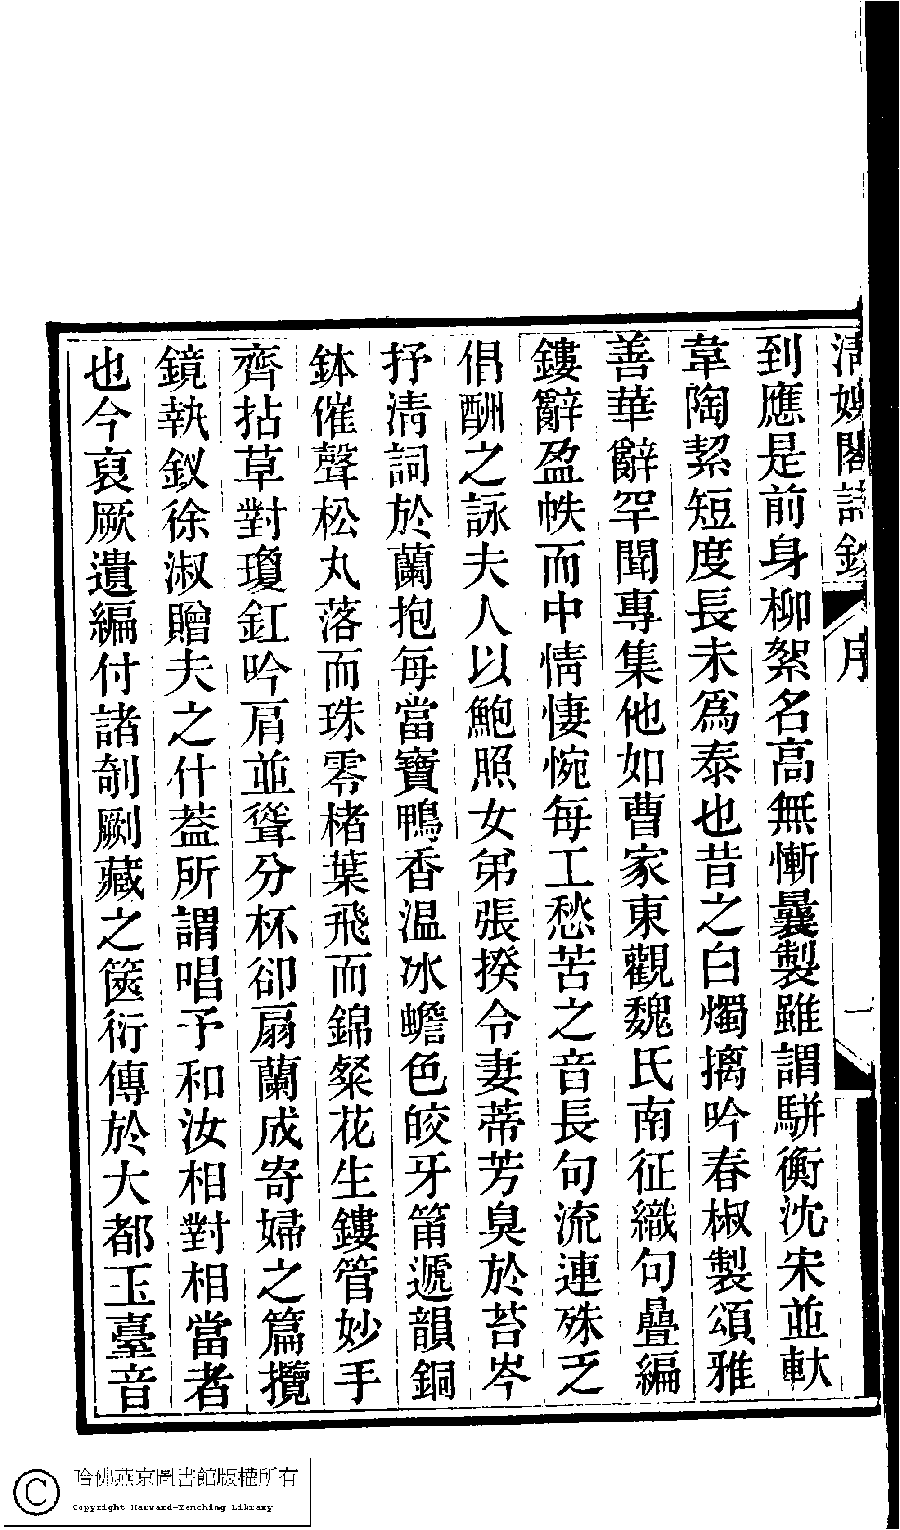 清娛閣詩鈔
序
一
到應是前身柳絮名高無慚曩製雖謂駢衡沈宋並軑
韋陶絜短度長未爲泰也昔之白燭摛吟春椒製頌雅
善華辭罕聞專集他如曹家東觀魏氏南征織句疊編
鏤辭盈帙而中情悽惋每工愁苦之音長句流連殊乏
倡酬之詠夫人以鮑照女弟張揆令妻蒂芳臭於苔岑
抒淸詞於蘭抱每當寶鴨香温冰蟾色皎牙籤遞韻銅
鉢催聲松丸落而珠零楮葉飛而錦粲花生鏤管妙手
齊拈草對瓊釭吟肩並聳分杯卻扇蘭成寄婦之篇攬
鏡執釵徐淑贈夫之什葢所謂唱予和汝相對相當者
也今裒厥遺編付諸剞劂藏之篋衍傳於大都玉臺音
哈佛燕京圖書館版權所有
Copyright Harvard-Yenching Library